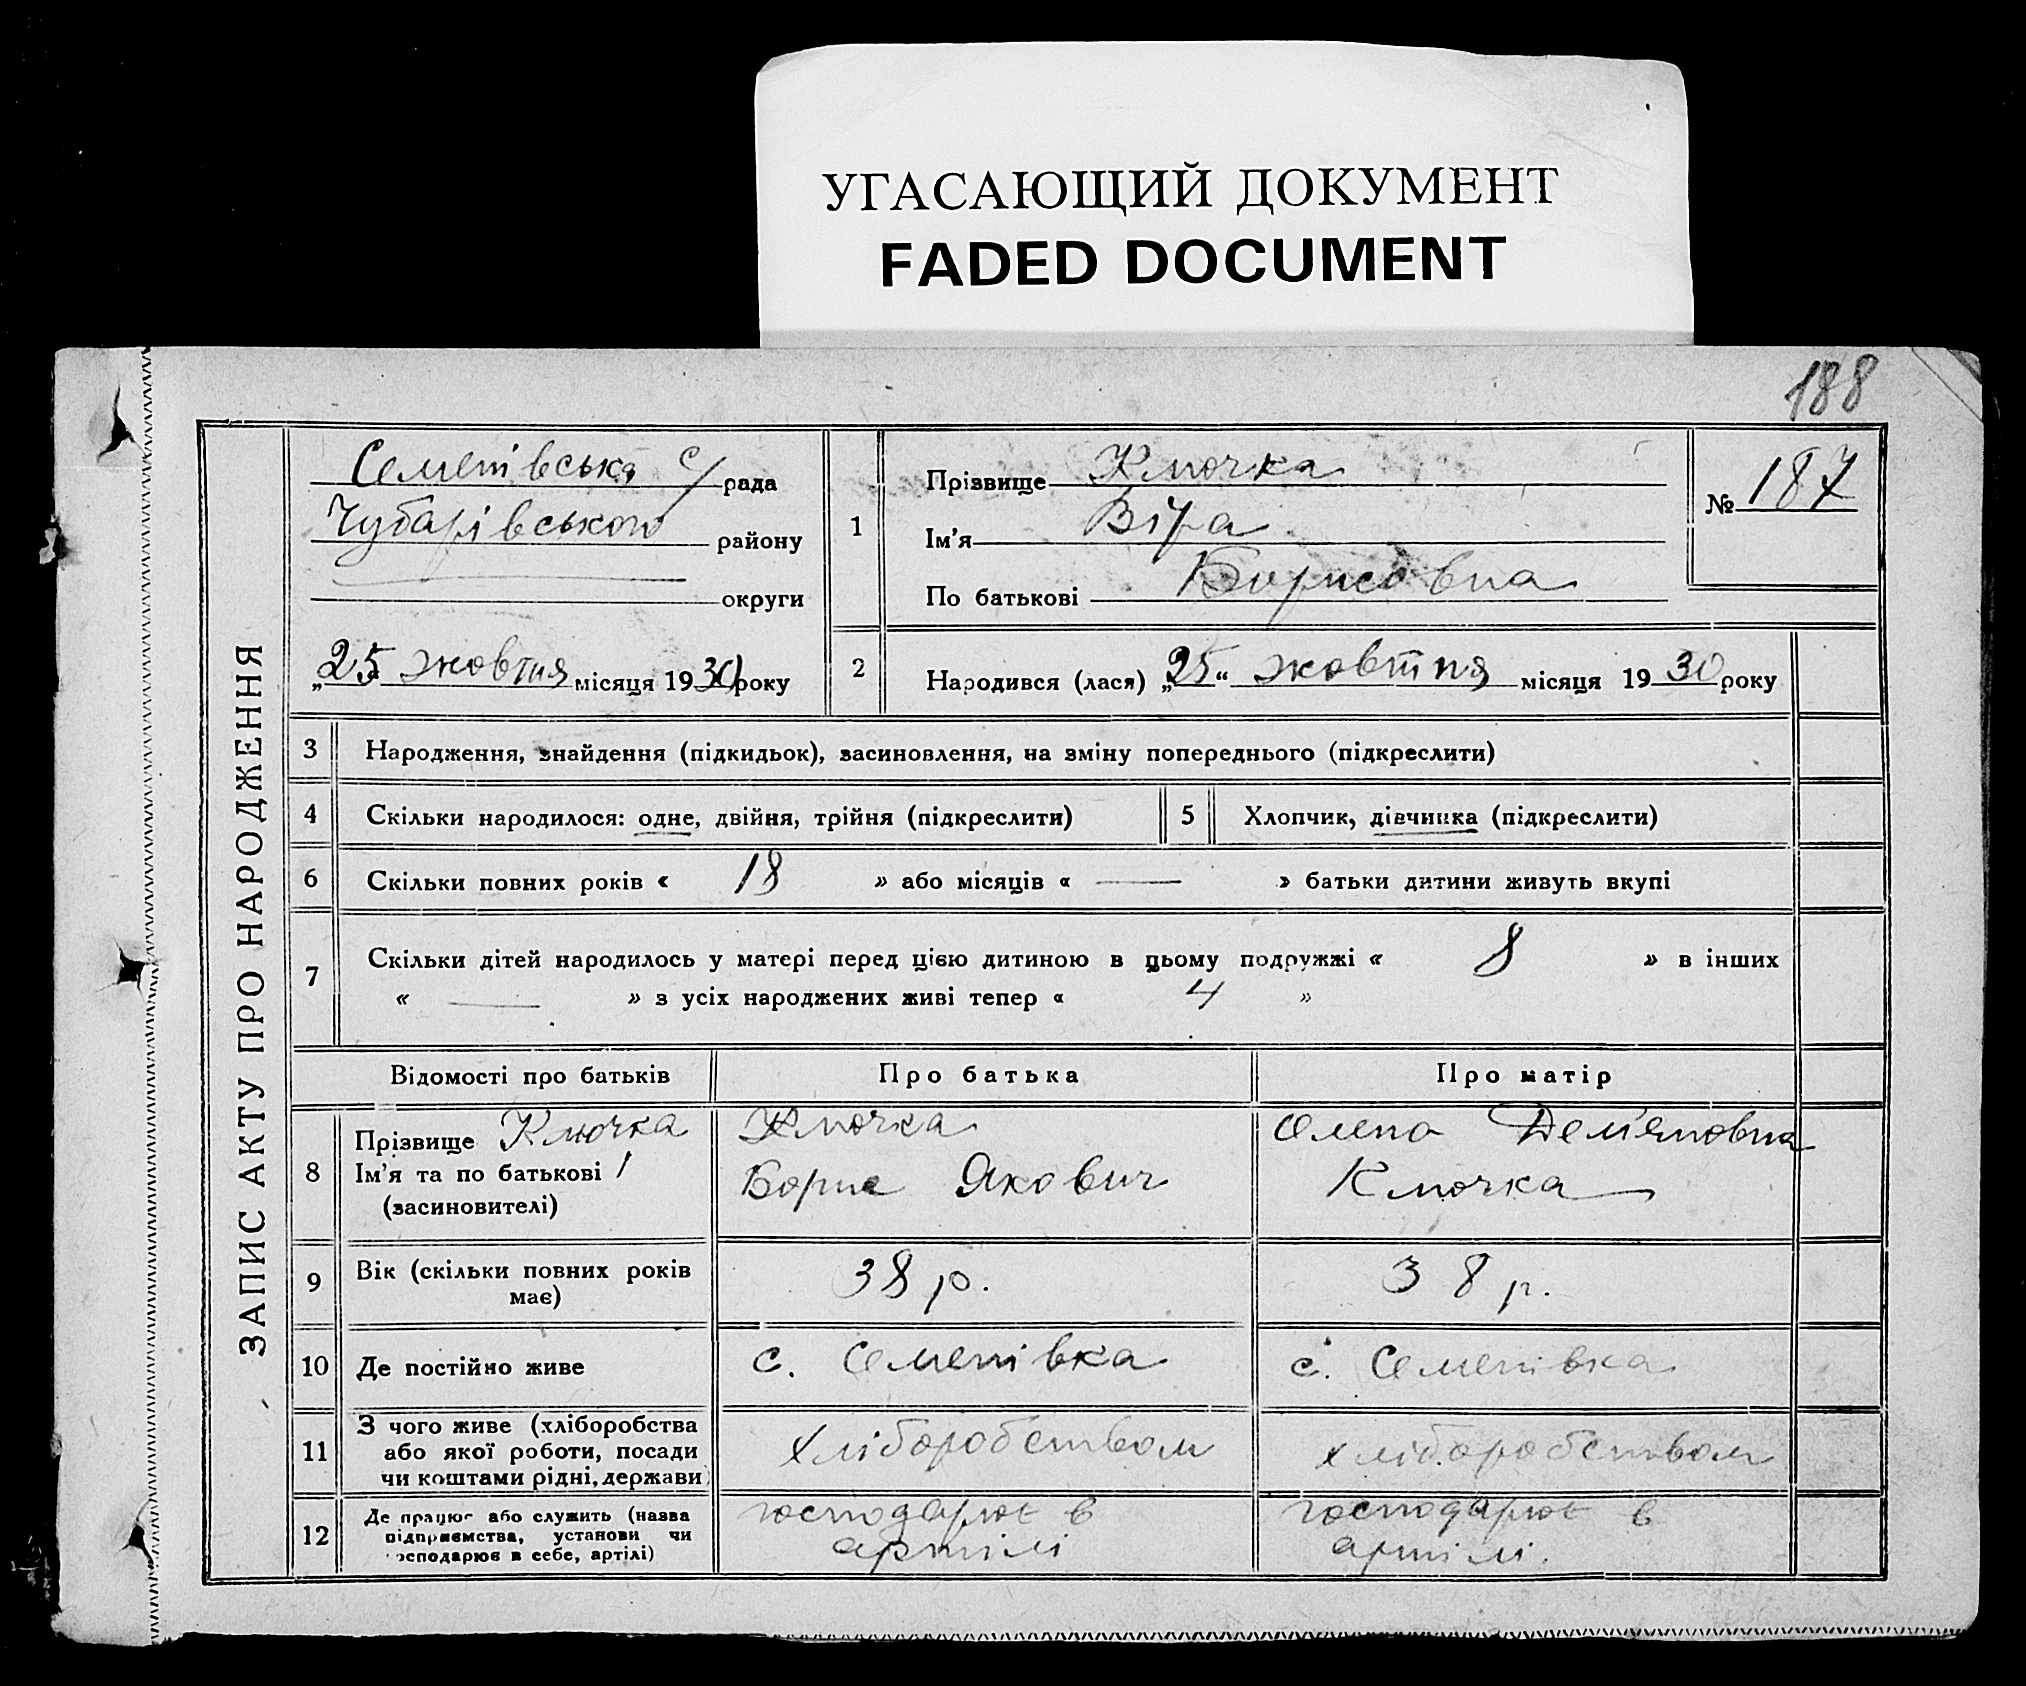 УГАСАЮЩИЙ ДОКУМЕНТ
FADED DOCUMENT
188
ЗАПИС АКТУ ПРО НАРОДЖЕННЯ
Семенівська с/рада
Чубарівського району
округи
„25 жовтня місяця 1930 року
1
Прізвище Ключка
Ім'я Віра
По батькові Борисовна
№ 187
2
Народився (лася) „25“ жовтня місяця 1930 року
3 Народження, знайдення (підкидьок), засиновлення, на зміну попереднього (підкреслити)
4 Скільки народилося: одне, двійня, трійня (підкреслити)
5 Хлопчик, дівчинка (підкреслити)
6 Скільки повних років « 18 » або місяців « — » батьки дитини живуть вкупі
7 Скільки дітей народилось у матері перед цією дитиною в цьому подружжі « 8 » в інших
« — » з усіх народжених живі тепер « 4 »
Відомості про батьків
Про батька
Про матір
8
Прізвище Ключка
Ім'я та по батькові
(засиновителі)
Ключка
Борис Якович
Олена Дем'яновна
Ключка
9
Вік (скільки повних років
має)
38 р.
38 р.
10 Де постійно живе
с. Семенівка
с. Семенівка
11
З чого живе (хліборобства
або якої роботи, посади
чи коштами рідні, держави)
хліборобством
хліборобством
12
Де працює або служить (назва
підприємства, установи чи
господарює в себе, артілі)
господарює в
артілі
господарює в
артілі.